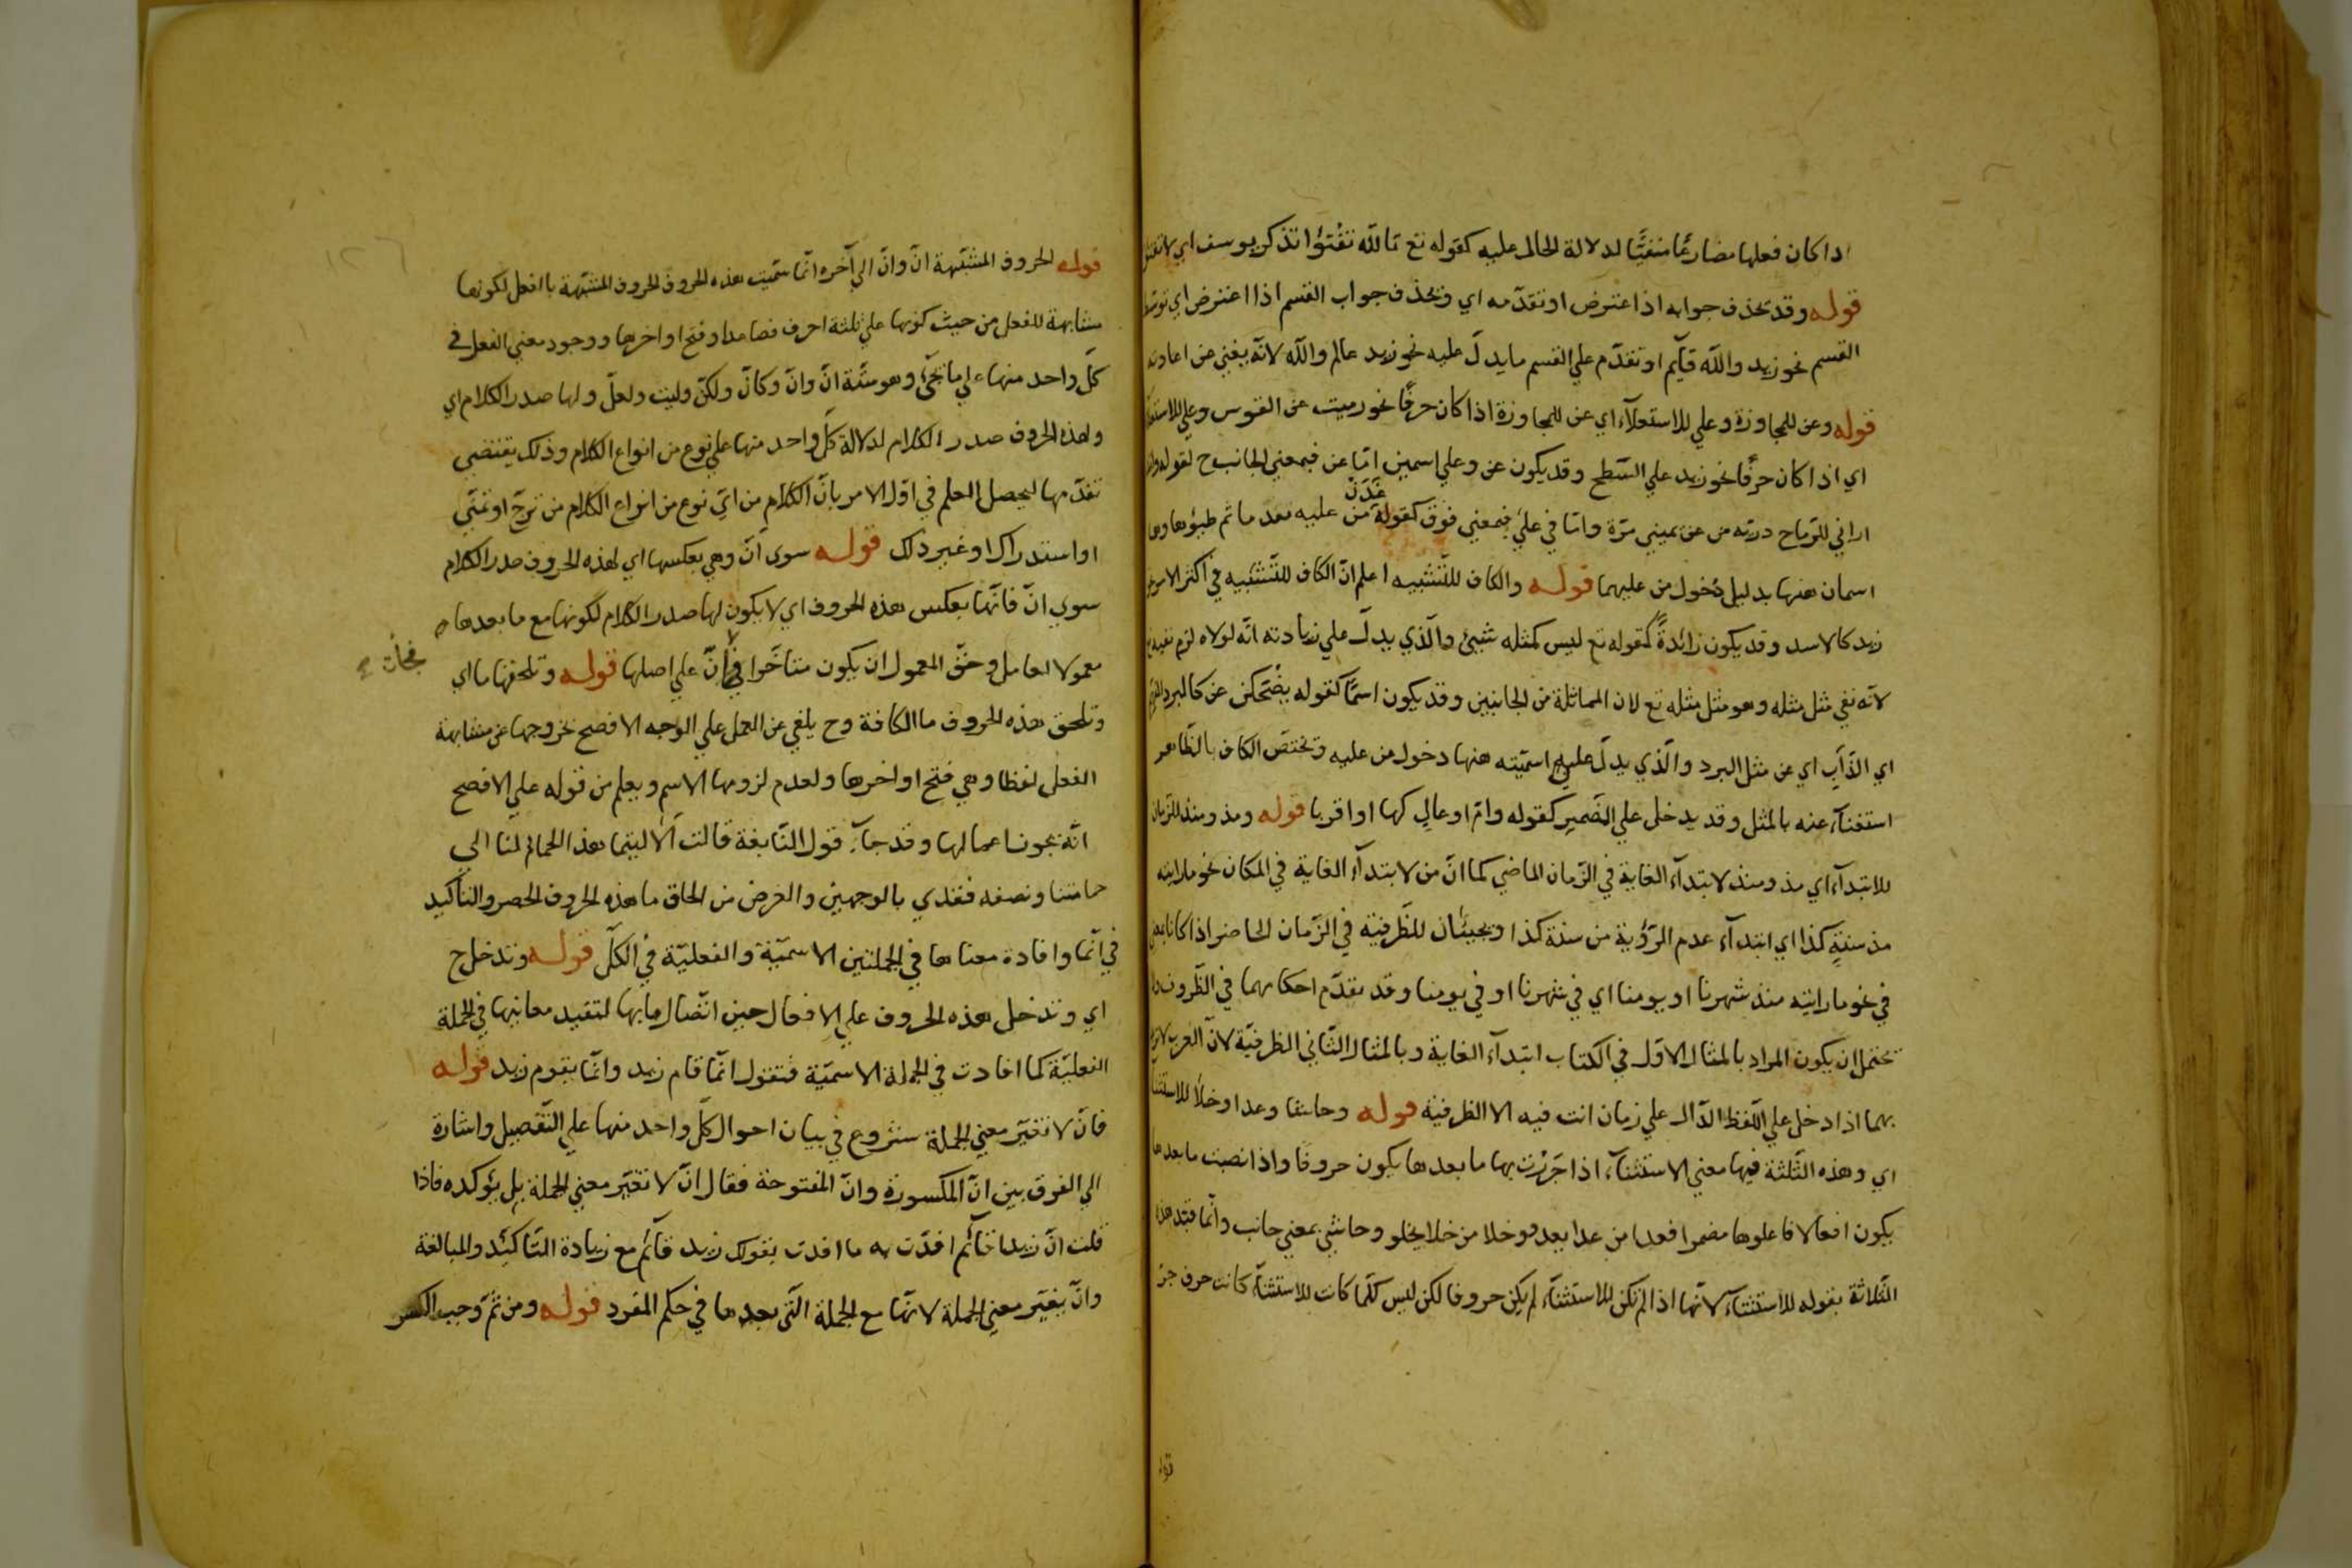 اذا كان فعلها مضارعًا منفيًّا لدلالة الحال عليه كقوله تع تالله تفتؤا تذكر يوسف اي لا تفتؤ
قوله وقد يحذف جوابه اذا اعترض او تقدّمه اي ويحذف جواب القسم اذا اعترض اي توسّط
القسم نحو زيد والله قآيم او تقدّم علي القسم ما يدلّ عليه نحو زيد عالم والله لانّه يغني عن اعادته
قوله وعن للمجاوزة وعلي للاستعلآء اي عن للمجاوزة اذا كان حرفًا نحو رميت عن القوس وعلي للاستعلا
اي اذا كان حرفًا نحو زيد علي السّطح وقد يكون عن وعلي اسمين امّا عن فبمعني الجانب ح لقوله ولقد
اراني للرّماح دريّه من عن يميني مرّة وامّا في علي فبمعني فوق كقوله غَدَتْ من عليه بعد ما تم ظمؤها وهما
اسمان هنها بدليل دخول من عليهما قوله والكاف للتّشبيه اعلم انّ الكاف للتّشبيه في اكثر الامر نحو
زيد كالاسد وقد يكون زائدةً كقوله تع ليس كمثله شيئ والّذي يدلّ علي زيادته انّه لولاه لزم نفيه تع
لانّه نفي مثل مثله وهو مثل مثله تع لان المماثلة من الجانبين وقد يكون اسمًا كقوله يضحكن عن كالبرد المنهم
اي الذّآيب اي عن مثل البرد والّذي يدلّ علي اسميّته هنها دخول من عليه وتختصّ الكاف بالظّاهر
استغنآء عنه بالمثل وقد يدخل علي الضّمير كقوله وامّ اوعالٍ كها او اقربا قوله ومذ ومنذ للزّمان
للابتدآء اي مذ ومنذ لابتدآء الغاية في الزّمان الماضي كما انّ من لابتدآء الغاية في المكان نحو ما رايته
مذ سنةٍ كذا اي ابتدآء عدم الرّؤية من سنة كذا ويجيئان للظّرفيّة في الزّمان الحاضر اذا كانا بمعني
في نحو ما رايته منذ شهرنا او يومنا اي في شهرنا او في يومنا وقد تقدّم احكامهما في الظّروف
تحتمل ان يكون المراد بالمثال الاوّل في الكتاب ابتدآء الغاية وبالمثال الثّاني الظرفيّة لانّ العرب لا تريد
بهما اذا دخل علي اللّفظ الدّال علي زمان انت فيه الا الظرفيّة قوله وحاشا وعدا وخلا للاستثنا
اي وهذه الثّلثة فيها معني الاستثنآء اذا جَرَرْتَ بها ما بعدها يكون حروفًا واذا نصبت ما بعدها
يكون افعالا فاعلوها مضمرا فعدا من عدا يعدو وخلا من خلا يخلو وحاشي بمعني جانب وانّما قيّد هذه
الثّلاثة بقوله للاستثنآء لانّها اذا لم تكن للاستثنآء لم يكن حروفا لكن ليس كلّما كانت للاستثنآء كانت حرف جرّ
قوله
قوله الحروف المشبّهة انّ وانّ الي آخره انّما سمّيت هذه الحروف الحروف المشبّهة باالفعل لكونها
مشابهة للفعل من حيث كونها علي ثلثة احرف فصاعدا وفتح اواخرها ووجود معني الفعل في
كلّ واحد منها علي ما يجيء وهو ستّة انّ وانّ وكانّ ولكنّ وليت ولعلّ ولها صدر الكلام اي
ولهذه الحروف صدر الكلام لدلالة كلّ واحد منها علي نوع من انواع الكلام وذلك يقتضي
تقدّمها ليحصل العلم في اوّل الامر بانّ الكلام من ايّ نوع من انواع الكلام من ترجّ او تمنّي
او استدراك او غير ذلك قوله سوي انّ وهي بعكسها اي لهذه الحروف صدر الكلام
سوي انّ فانّها بعكس هذه الحروف اي لا يكون لها صدر الكلام لكونها مع ما بعدها
معمولا لعامل وحقّ المعمول ان يكون متاخّرا علي اصلها قوله وتلحقها ما اي
وتلحق هذه الحروف ما الكافة وح يلغي عن العمل علي الوجه الافصح لخروجها عن مشابهة
الفعل لفظا وهي فتح اواخرها ولعدم لزومها الاسم ويعلم من قوله علي الافصح
انّه يجوز اعمالها وقد جآء قول النّابغة قالت ألا ليتما هذا الحمام لنا الي
حمامتنا ونصفه فقدي بالوجهين والغرض من الحاق ما هذه الحروف الحصر والتأكيد
في انّما وافادة معناها في الجملتين الاسميّة والفعليّة في الكلّ قوله وتدخل ح
اي وتدخل هذه الحروف علي الافعال حين اتّصال ما بها لتفيد معانيها في الجملة
الفعليّة كما افادت في الجملة الاسميّة فتقول انّما قام زيد وانّما يقوم زيد قوله
فانّ لا تغيّر معني الجملة شروع في بيان احوال كلّ واحد منها علي التّفصيل واشارة
الي الفرق بين انّ المكسورة وانّ المفتوحة فقال انّ لا تغيّر معني الجملة بل يؤكده فاذا
قلت انّ زيدا قآئم افدّت به ما افدت بقولك زيد قآئم مع زيادة التّاكيد والمبالغة
وانّ يغيّر معني الجملة لانّها مع الجملة الّتي بعدها في حكم المفرد قوله ومن ثمّ وجب الكسر